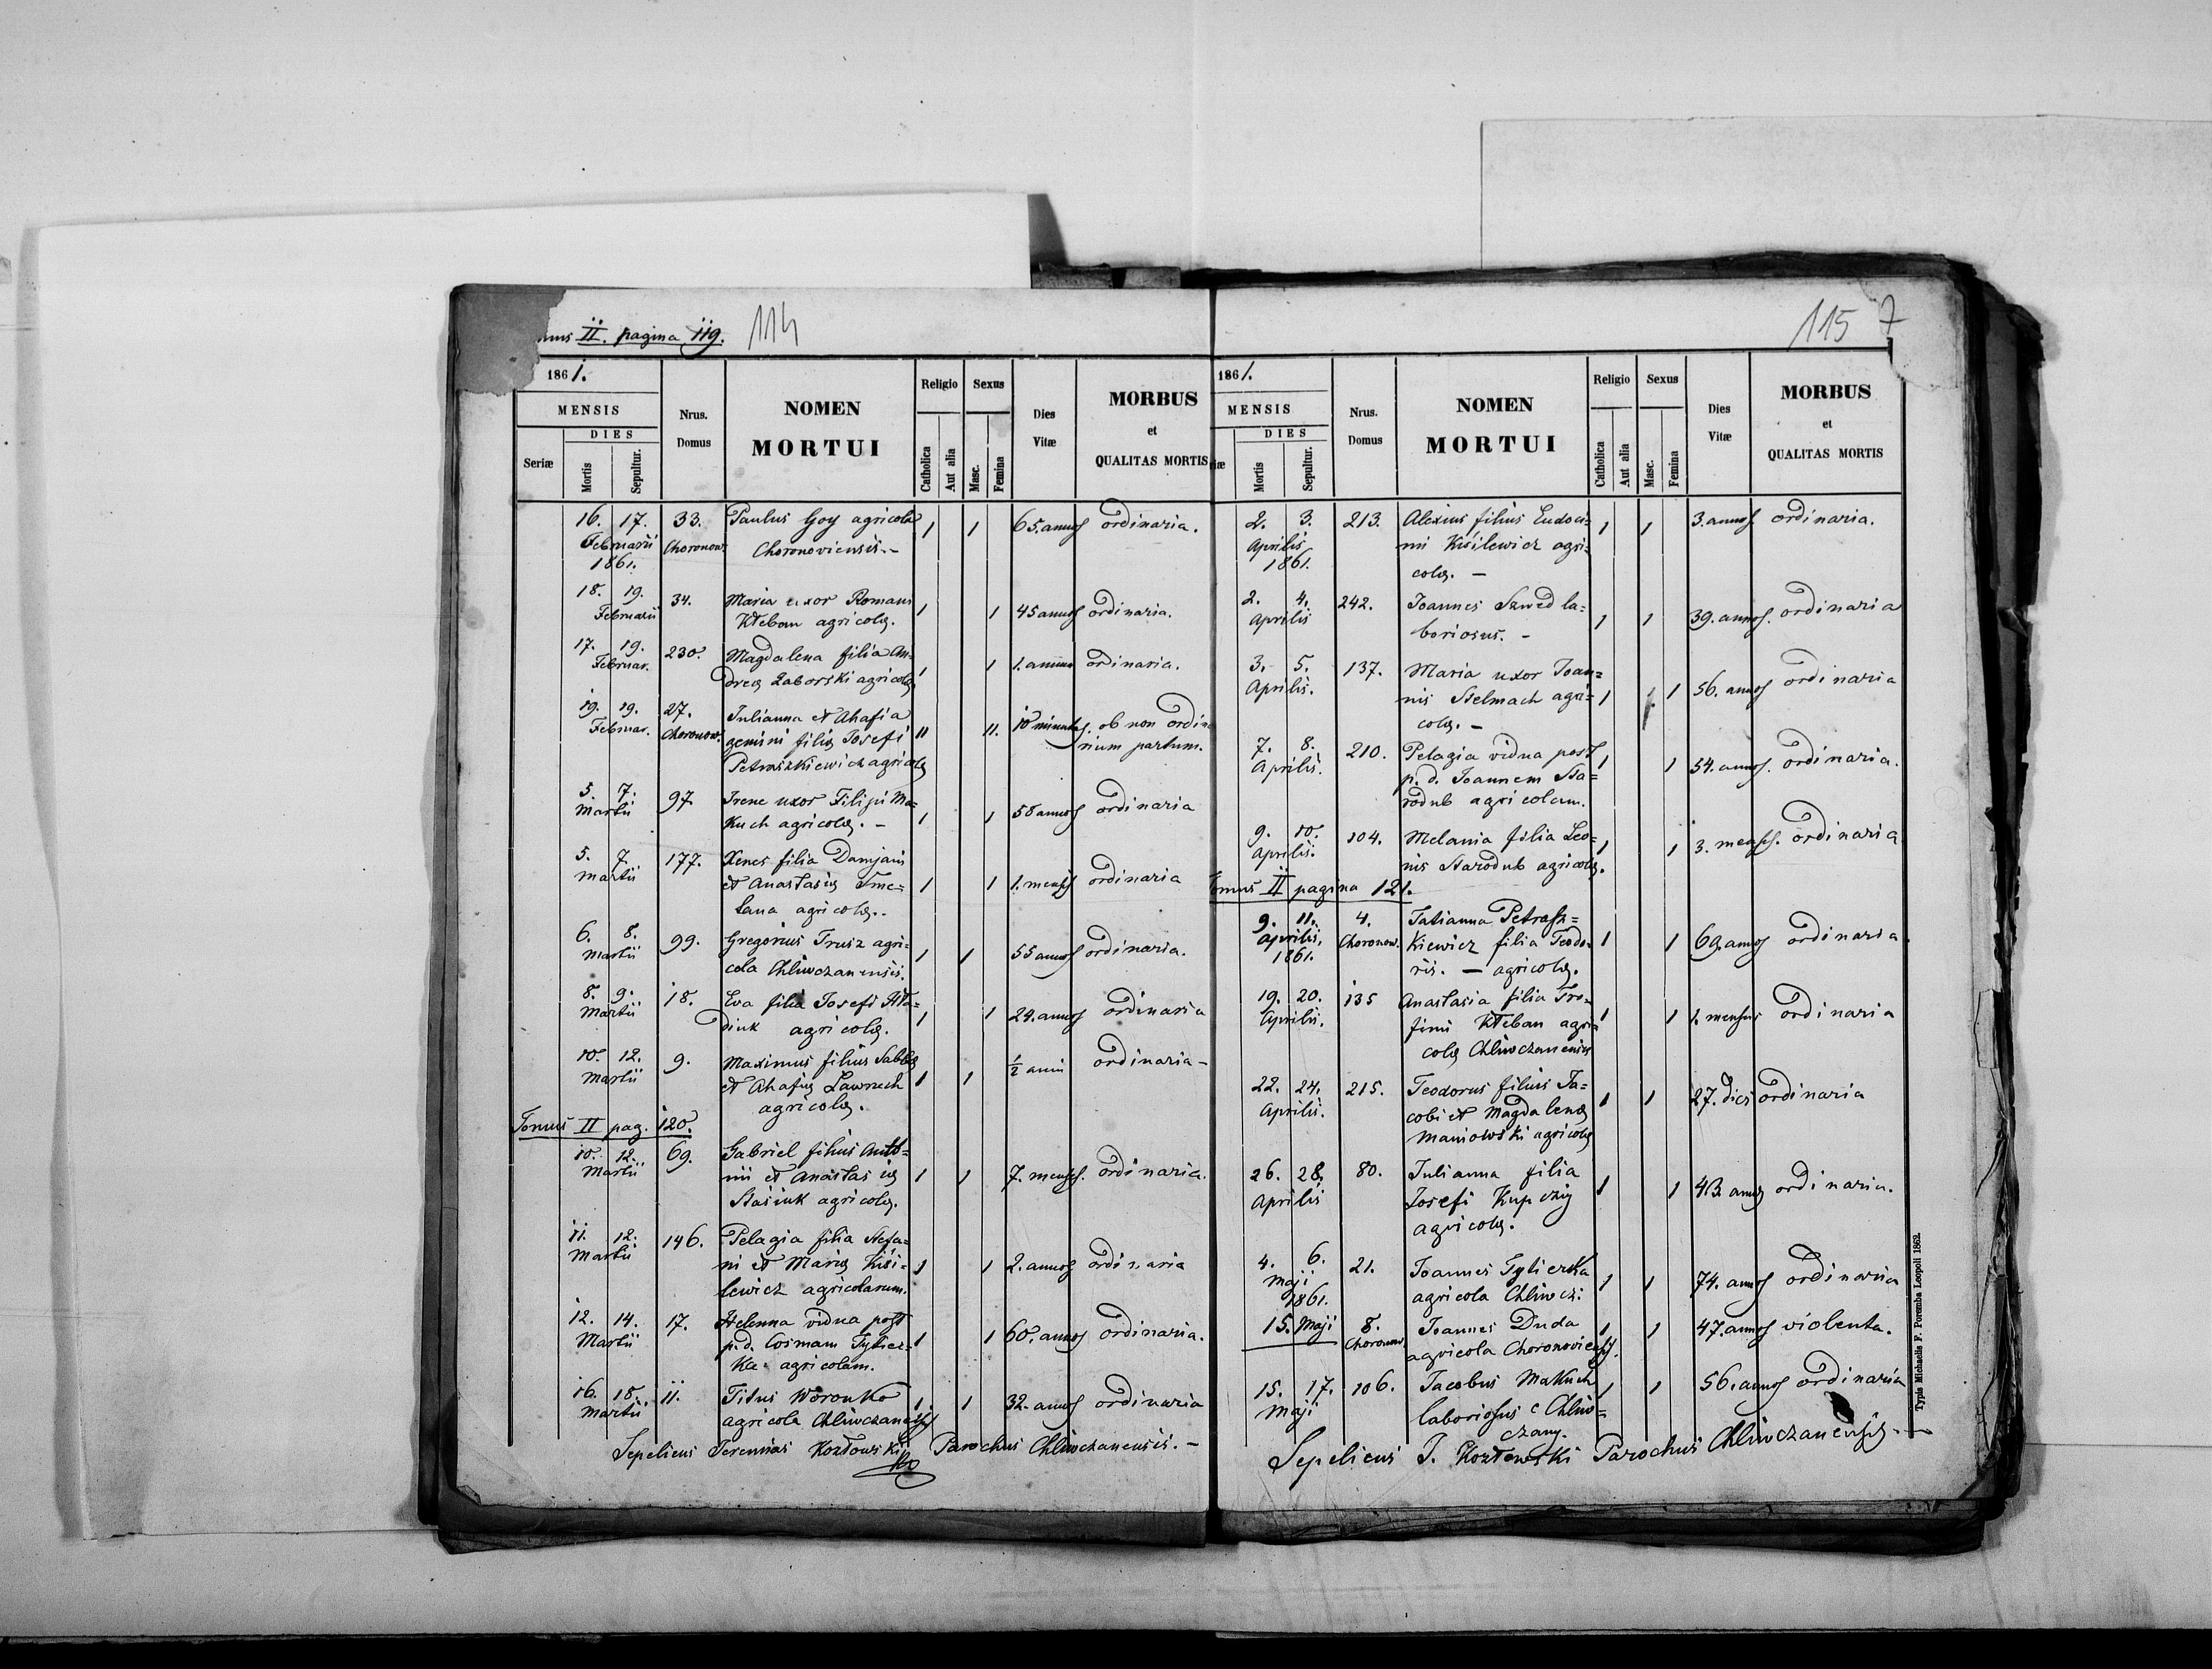 Tomus II. pagina 119. 114
1861.
MENSIS
DIES
Seriæ Mortis Sepultur.
Nrus. Domus
NOMEN
MORTUI
Religio Sexus
Catholica Aut alia Masc. Femina
Dies Vitæ
MORBUS
et
QUALITAS MORTIS
16. 17. 33. Paulus Goy agricola 1 1 65 annos ordinaria.
Februarii Choronow. Choronoviensis.-
1861.
18. 19. 34. Maria uxor Romani 1 1 45 annos ordinaria.
Februarii Kłeban agricolæ.
17. 19. 230. Magdalena filia An= 1 1 1. annum ordinaria.
Februar. dreæ Zaborski agricolæ
19. 19. 27. Julianna et Ahafia 11 11. 10 minutas. ob non ordina
Februar. Choronow. gemini filiæ Josefi rium partum.
Petraszkiewicz agricolæ
5. 7. 97. Irene uxor Filipi Ma= 1 1 58 annos ordinaria
Martii kuch agricolæ. -
5. 7. 177. Xenes filia Damjani 1 1 1. mensis ordinaria
Martii et Anastasiæ Sme=
tana agricolæ..
6. 8. 99. Gregorius Trusz agri= 1 1 55 annos ordinaria.
Martii cola Chliwczanensis.
8. 9. 18. Eva filia Josefi Hła= 1 1 24. annos ordinaria
Martii diuk agricolæ.
10. 12. 9. Maximus filius Sabbæ 1 1 ½ anni ordinaria -
Martii et Ahafiæ Lawruch
agricolæ.
Tomus II pag. 120.
10. 12. 69. Gabriel filius Anto= 1 1 7. menses. ordinaria.
Martii nii et Anastasiæ
Stasiuk agricolæ.
11. 12. 146. Pelagia filia Stefa= 1 1 2. annos ordinaria
Martii ni et Mariæ Kisi=
lewicz agricolarum.
12. 14. 17. Helenna vidua post 1 1 60. annos ordinaria.
Martii p.d. Cosmam Tylicz=
ka agricolam.
16. 18. 11. Titus Woronko 1. 1 32. annos ordinaria
Martii agricola Chliwczanensis
Sepeliens Jeremias Kozłowski Parochus Chliwczanensis. -
115 7
1861.
MENSIS
DIES
Mortis Sepultur.
Nrus. Domus
NOMEN
MORTUI
Religio Sexus
Catholica Aut alia Masc. Femina
Dies Vitæ
MORBUS
et
QUALITAS MORTIS
2. 3. 213. Alexius filius Eudoci= 1 1 3. annos. ordinaria.
Aprilis mi Kisilewicz agri=
1861. colæ. -
2. 4. 242. Joannes Szwed la= 1 1 39. annos. ordinaria
Aprilis boriosus. -
3. 5. 137. Maria uxor Joan= 1 1 56. annos ordinaria
Aprilis. nis Stelmach agri=
colæ. -
7. 8. 210. Pelagia vidua post 1 1 54. annos. ordinaria.
Aprilis. p. d. Joannem Sta=
rodub agricolam.
9. 10. 104. Melania filia Leo= 1 1 3. menses. ordinaria
Aprilis. nis Starodub agricolæ.
Tomus II pagina 121.
9. 11. 4. Tatianna Petrasz= 1 1 60 annos ordinaria
Aprilis. Choronow. kiewicz filia Teodo=
1861. ris. - agricolæ.
19. 20. 135 Anastasia filia Tro= 1 1 1. mensis ordinaria
Aprilis. fimi Kłeban agri=
colæ Chliwczanensis
22. 24. 215. Teodorus filius Ja= 1 1 27. dies ordinaria
Aprilis. cobi et Magdalenæ
Maniowski agricolæ
26. 28. 80. Julianna filia 1 1 43. annos ordinaria.
Aprilis Josefi Kupcziy
agricolæ.
4. 6. 21. Joannes Tyliczka 1 1 74. annos ordinaria
Maji agricola Chliwcz:
1861.
15. Maji 8. Joannes Duda 1 1 47. annos violenta.
Choronow. agricola Choronoviensis.
15. 17. 106. Jacobus Makuch 1 1 56. annos ordinaria
Maji laboriosus e Chliw=
czany.
Sepeliens J. Kozłowski Parochus Chliwczanensis. -
Typis Michaelis F. Poremba Leopoli 1862.